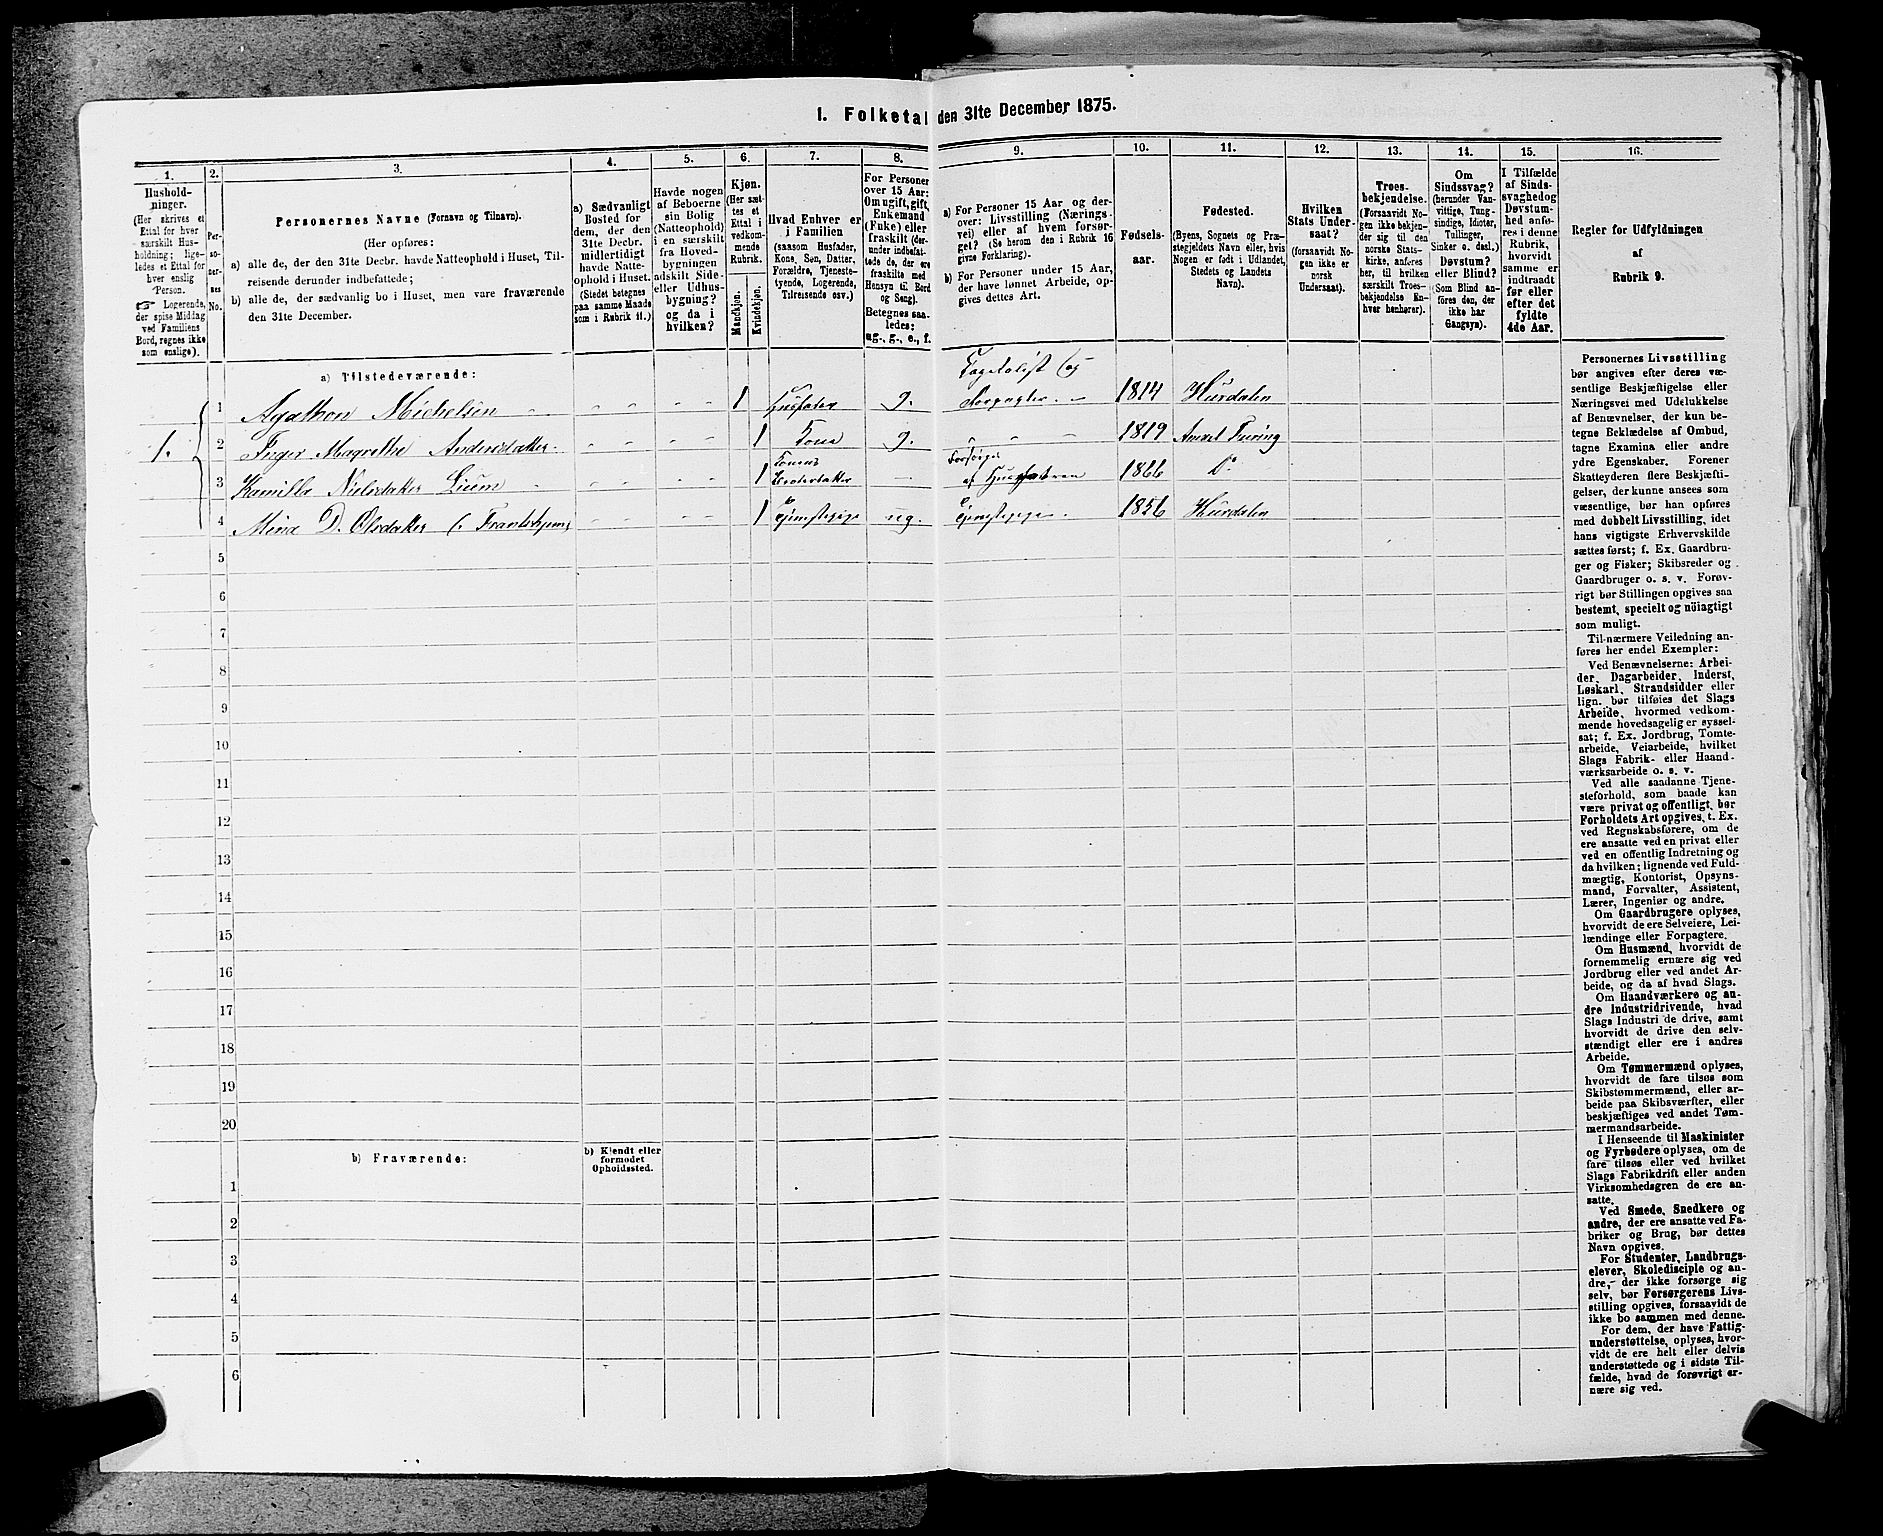 I. Folketal den 31te December 1875.
1.
2.
3.
4.
5.
6.
7.
8.
9.
10.
11.
12.
13.
14.
15.
16.
Hushold-
ninger.
(Her skrives et
Ettal for hver
særskilt Hus-
holdning; lige-
ledes et Ettal for
hver enslig
Person.
☞ Logerende,
der spise Middag
ved Familiens
Bord, regnes ikke
som enslige).
Per-
so-
ner-
nes
No.
Personernes Navne (Fornavn og Tilnavn).
(Her opføres:
a) alle de, der den 31te Decbr. havde Natteophold i Huset, Til-
reisende derunder indbefattede;
b) alle de, der sædvanlig bo i Huset, men vare fraværende
den 31te December.
a) Sædvanligt
Bosted for
dem, der den
31te Decbr.
midlertidigt
havde Natte-
ophold i Huset.
(Stedet betegnes
paa samme Maade
som i Rubrik 11.)
Havde nogen
af Beboerne
sin Bolig
(Natteophold)
i en særskilt
fra Hoved-
bygningen
adskilt Side-
eller Udhus-
bygning?
og da i
hvilken?
Kjøn.
(Her sæt-
tes et
Ettal i
vedkom-
mende
Rubrik.
Mandkjøn.
Kvindekjøn.
Hvad Enhver er
i Familien
(saasom Husfader,
Kone, Søn, Datter,
Forældre, Tjeneste-
tyende, Logerende,
Tilreisende osv.)
For Personer
over 15 Aar:
Om ugift, gift,
Enkemand
(Enke) eller
fraskilt (der-
under indbefat-
tede de, der ere
fraskilte med
Hensyn til Bord
og Seng).
Betegnes saa-
ledes:
ug., g., e., f.
a) For Personer 15 Aar og der-
over: Livsstilling (Nærings-
vei) eller af hvem forsør-
get? (Se herom den i Rubrik 16
givne Forklaring).
b) For Personer under 15 Aar,
der have lønnet Arbeide, op-
gives dettes Art.
Fødsels-
aar.
Fødested.
(Byens, Sognets og Præ-
stegjeldets Navn eller, hvis
Nogen er født i Udlandet,
Stedets og Landets
Navn).
Hvilken
Stats Under-
saat?
(forsaavidt No-
gen ikke er
norsk
Undersaat).
Troes-
bekjendelse.
(Forsaavidt No-
gen ikke bekjen-
der sig til den
norske Stats-
kirke, anføres
her, til hvilken
særskilt Troes-
bekjendelse En-
hver henhører).
Om
Sindssvag?
(herunder Van-
vittige, Tung-
sindige, Idioter,
Tullinger,
Sinker o. desl.)
Døvstum?
eller Blind?
(Som Blind an-
føres den, der
ikke har
Gangsyn).
I Tilfælde
af Sinds-
svaghed og
Døvstum-
hed anfø-
res i denne
Rubrik,
hvorvidt
samme er
indtraadt
før eller
efter det
fyldte
4de Aar.
Regler for Udfyldningen
af
Rubrik 9.
a) Tilstedeværende:
1. 1 Agathon Michelsen - - - - - 1 Husfader g. Dagelejst og Forpagter - 1814 Hurdalen
2 Inger Magrethe Andersdatter - - - - - 1 Kone g. - - - 1819 Amvet Furing
3 Kamilla Nielsdatter Lium - - - - - 1 Konens Broderdatter - Forsørges af Husfaderen 1866 Do
4 Mina D. Olsdatter - - - - 1 Tjenestepige ug. Tjenestepige - 1856 Hurdalen
5
6
7
8
9
10
11
12
13
14
15
16
17
18
19
20
b) Fraværende:
b) Kjendt eller
formodet
Opholdssted.
1
2
3
4
5
6
Personernes Livsstilling
bør angives efter deres væ-
sentlige Beskjæftigelse eller
Næringsvei med Udelukkelse
af Benævnelser, der kun be-
tegne Beklædelse af Ombud,
tagne Examina eller andre
ydre Egenskaber. Forener
Skatteyderen flere Beskjæfti-
gelser, der kunne ansees som
væsentlige, bør han opføres
med dobbelt Livsstilling, idet
hans vigtigste Erhvervskilde
sættes først; f. Ex. Gaardbru-
ger og Fisker; Skibsreder og
Gaardbruger o. s. v. Forøv-
rigt bør Stillingen opgives saa
bestemt, specielt og nöiagtigt
som muligt.
Til nærmere Veiledning an-
føres her endel Exempler:
Ved Benævnelserne: Arbei-
der, Dagarbeider, Inderst,
Løskarl, Strandsidder eller
lign. bør tilføies det Slags
Arbeide, hvormed vedkom-
mende hovedsagelig er syssel-
sat; f. Ex. Jordbrug, Tomte-
arbeide, Veiarbeide, hvilket
Slags Fabrik- eller Haand-
værksarbeide o. s. v.
Ved alle saadanne Tjene-
steforhold, som baade kan
være privat og offentligt, bør
Forholdets Art opgives, t. Ex.
ved Regnskabsførere, om de
ere ansatte ved en privat eller
ved en offentlig Indretning og
da hvilken; lignende ved Fuld-
mægtig, Kontorist, Opsyns-
mand, Forvalter, Assistent,
Lærer, Ingeniør og andre.
Om Gaardbrugere oplyses,
hvorvidt de ere Selveiere, Lei-
lændinge eller Forpagtere.
Om Husmænd, hvorvidt de
fornemmelig ernære sig ved
Jordbrug eller ved andet Ar-
beide, og da af hvad Slags.
Om Haandværkere og an-
dre Industridrivende, hvad
Slags Industri de drive, samt
hvorvidt de drive den selv-
stændigt eller ere i andres
Arbeide.
Om Tømmermænd oplyses,
hvorvidt de fare tilsøs som
Skibstømmermænd, eller ar-
beide paa Skibsværfter, eller
beskjæftiges ved andet Tøm-
mermandsarbeide.
I Henseende til Maskinister
og Fyrbødere oplyses, om de
fare tilsøs eller ved hvilket
Slags Fabrikdrift eller anden
Virksomhedsgren de ere an-
satte.
Ved Smede, Snedkere og
andre, der ere ansatte ved Fa-
briker og Brug, bør dettes
Navn opgives.
For Studenter, Landbrugs-
elever, Skoledisciple og an-
dre, der ikke forsørge sig
selv, bør Forsørgerens Livs-
stilling opgives, forsaavidt de
ikke bo sammen med denne.
For dem, der have Fattig-
understøttelse, oplyses, hvor-
vidt de ere helt eller delvis
understøttede og i sidste Til-
fælde, hvad de forøvrigt er-
nære sig ved.